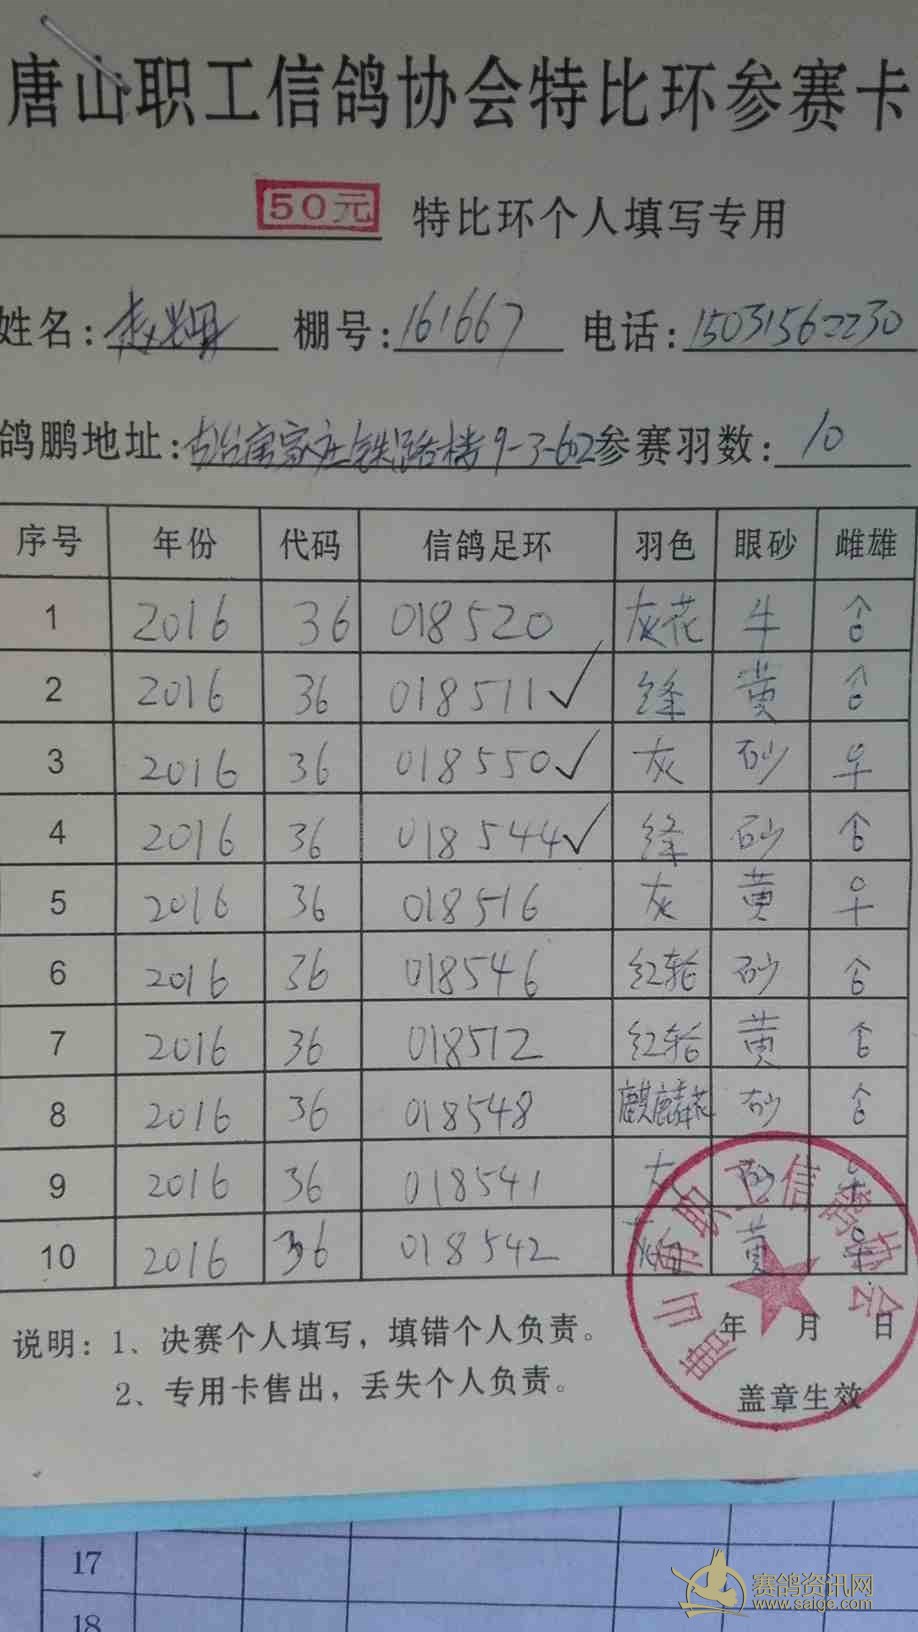 唐山职工信鸽协会特比环参赛卡
50元 特比环个人填写专用
姓名: 棚号:161667 电话:15031562230
鸽鹏地址:古冶唐家庄铁路楼9-3-602 参赛羽数:10
序号 年份 代码 信鸽足环 羽色 眼砂 雌雄
1 2016 36 018520 灰花 牛 ♂
2 2016 36 018511✓ 绛 黄 ♂
3 2016 36 018550✓ 灰 砂 ♀
4 2016 36 018544✓ 绛 砂 ♂
5 2016 36 018516 灰 黄 ♀
6 2016 36 018546 红轮 砂 ♂
7 2016 36 018512 红轮 黄 ♂
8 2016 36 018548 麒麟花 砂 ♂
9 2016 36 018541 灰 砂 ♀
10 2016 36 018542 黄 ♀
说明:1、决赛个人填写,填错个人负责。
2、专用卡售出,丢失个人负责。
年 月 日
盖章生效
唐山市职工信鸽协会
17
18
赛鸽资讯网
www.saige.com